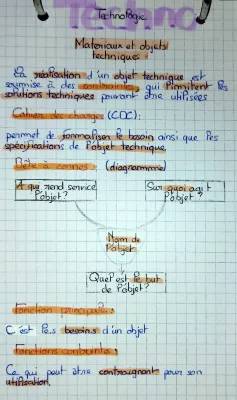 Techno
Technologie
Matériaux et objets
techniques
La réalisation d'un objet technique est
soumise à des contraintes, qui limitent les
solutions techniques pouvant être utilisées
Cahier des charges (CDC):
permet de formaliser le besoin ainsi que les
spécifications de l'objet technique
Bête à cornes : (diagramme)
A qui rend service
l'objet?
Sur quoi agit
l'objet?
Nom de
l'objet
Quel est le but
de l'objet?
Fonction principale :
C'est les besoins d'un objet
Fonctions contraintes :
Ce qui peut être contraignant pour son
utilisation.